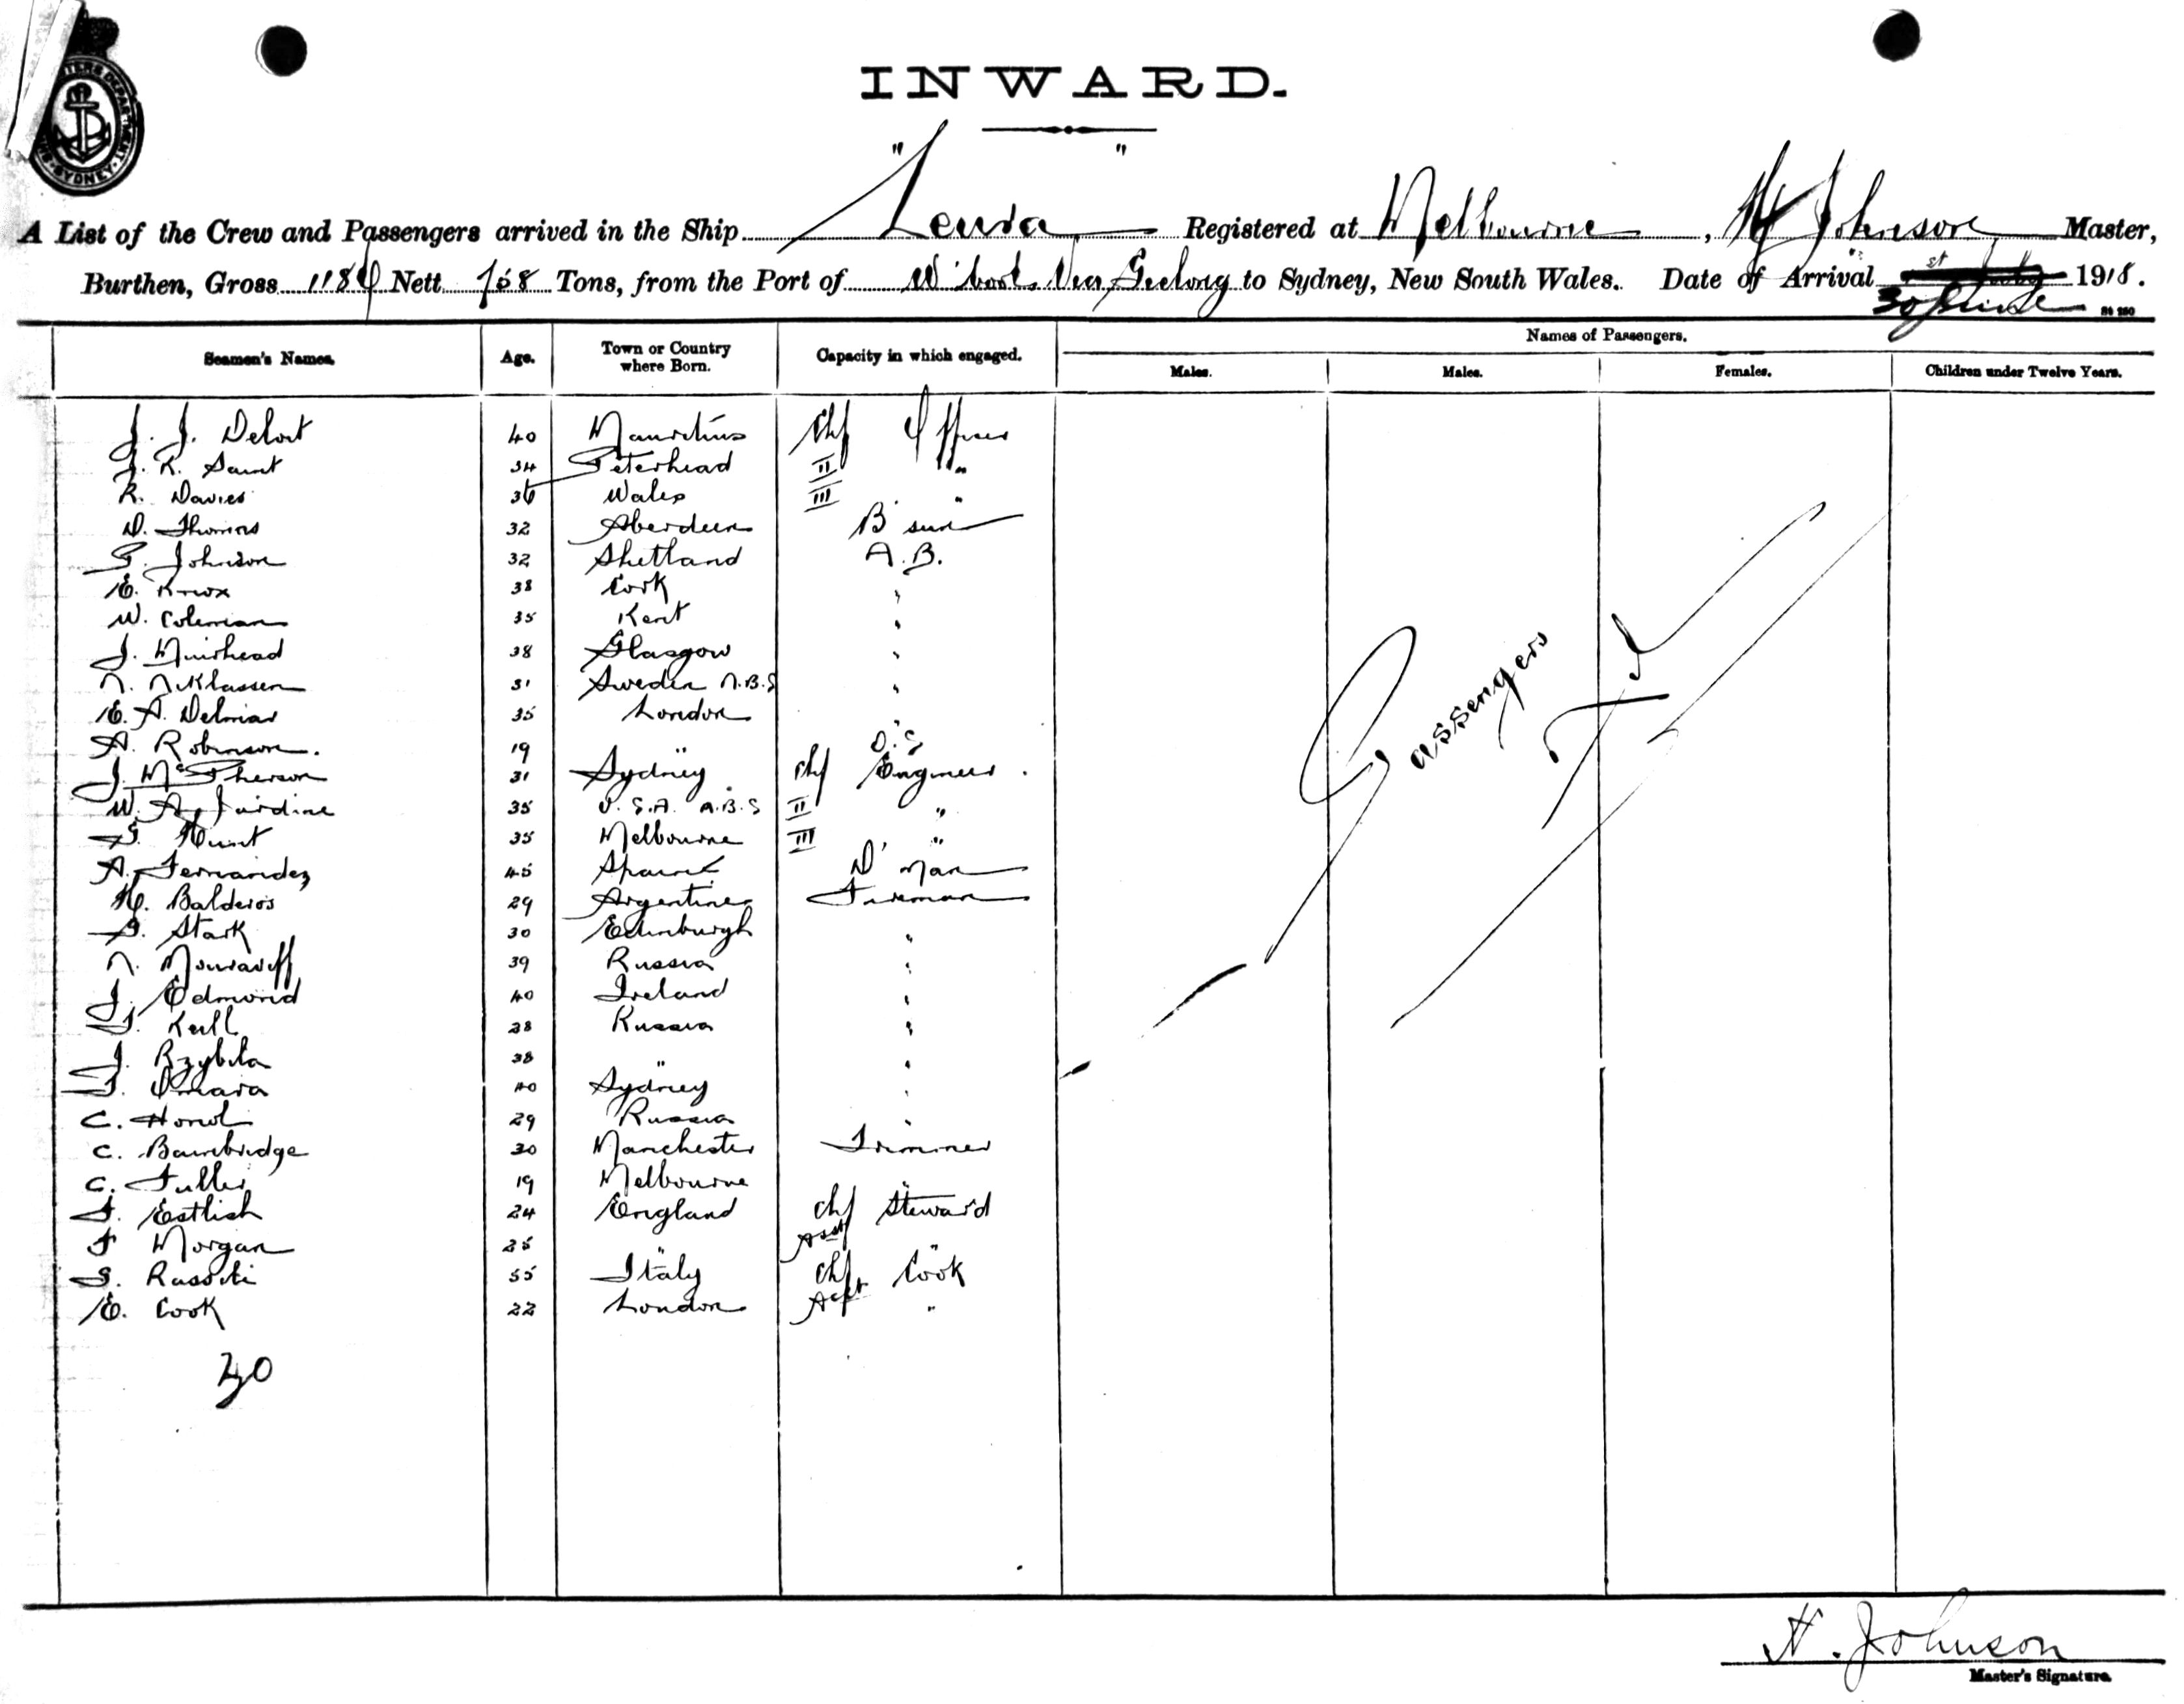 SYDNEY
INWARD.
A List of the Crew and Passengers arrived in the Ship "Leura" Registered at Melbourne, H Johnson Master,
Burthen, Gross 1184 Nett 758 Tons, from the Port of W'bool Via Geelong to Sydney, New South Wales. Date of Arrival 30 June 1918.
Names of Passengers.
Seamen's Names. Age. Town or Country where Born. Capacity in which engaged. Males. Males. Females. Children under Twelve Years.
J. J. Delort 40 Mauritius Chf Officer
J. R. Saint 34 Peterhead II "
R. Davies 36 Wales III "
D. Thomas 32 Aberdeen B'sun
G. Johnson 32 Shetland A.B.
E. Knox 38 Cork "
W. Coleman 35 Kent "
J. Muirhead 38 Glasgow "
N. Niklassen 31 Sweden N.B.S "
E. A. Delmar 35 London "
A. Robinson. 19 " O.S
J. McPherson 31 Sydney Chf Engineer.
W. A. Jardine 35 U.S.A. N.B.S II "
G. Hunt 35 Melbourne III "
A. Fernandez 45 Spain D'man
H. Balderos 29 Argentine Fireman
G. Stark 30 Edinburgh "
N. Mouravieff 39 Russia "
J. Edmond 40 Ireland "
J. Kull 28 Russia "
J. Rzybila 38 " "
T. Omara 40 Sydney "
C. 29 Russia "
C. Bainbridge 30 Manchester Trimmer
C. Fuller 19 Melbourne "
F. Estlick 24 England Chf Steward
F Morgan 25 " Asst "
S. 55 Italy Chf Cook
E. Cook 22 London Asst "
30
Passengers
Nil
H. Johnson
Master's Signature.